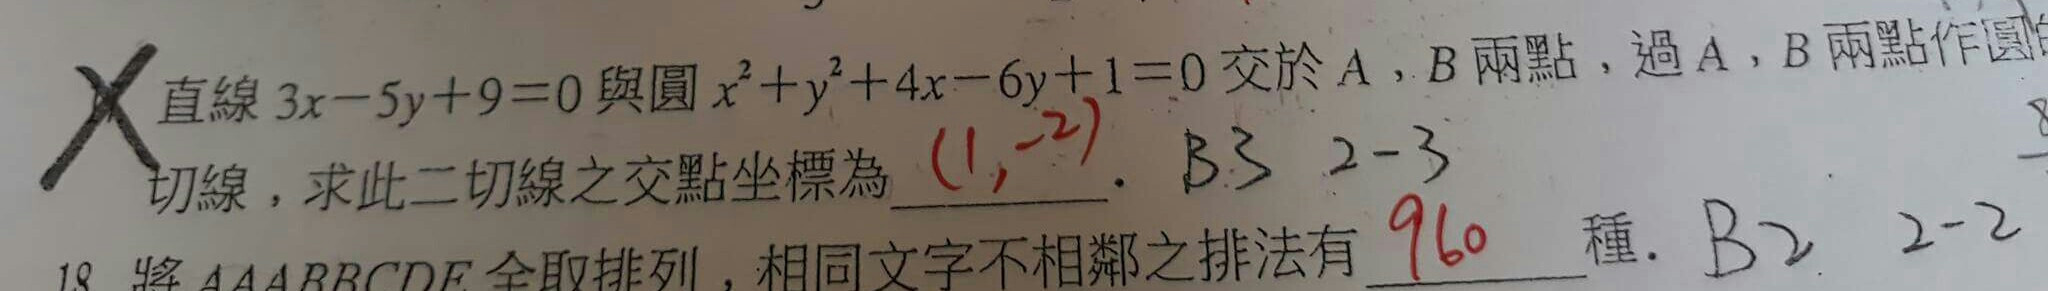 直線 3x－5y＋9＝0 與圓 x²＋y²＋4x－6y＋1＝0 交於 A，B 兩點，過 A，B 兩點作圓的
切線，求此二切線之交點坐標為 (1, -2). B3 2-3
18. 將 AAABBCDE 全取排列，相同文字不相鄰之排法有 960 種. B2 2-2